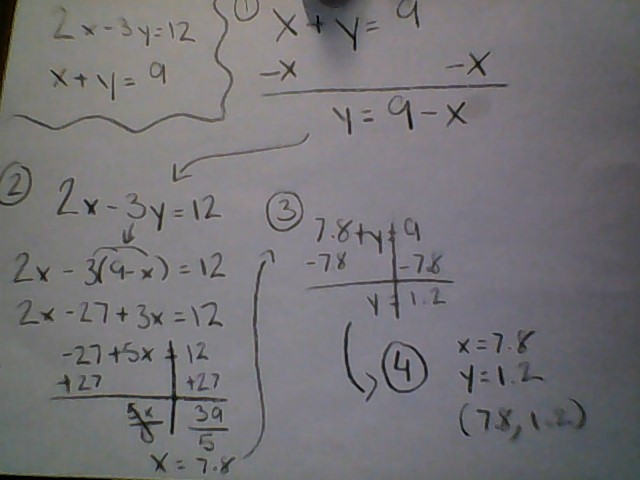 2x-3y=12
x+y=9
① x+y=9
-x -x
y=9-x
② 2x-3y=12
2x-3(9-x)=12
2x-27+3x=12
-27+5x=12
+27 +27
5x 39
5 5
x=7.8
③ 7.8+y=9
-7.8 -7.8
y=1.2
④ x=7.8
y=1.2
(7.8, 1.2)